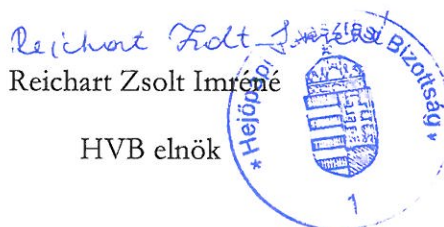 Reichart Zsolt Imréné
Reichart Zsolt Imréné
HVB elnök
* Hejőpapi Bizottság *
1